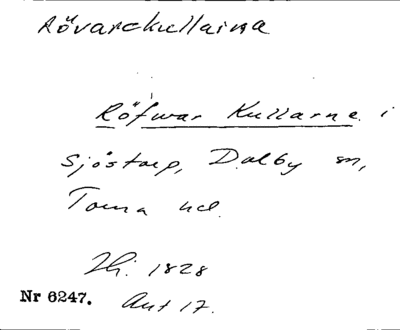 Rövarekullarna
Röfwar Kullarne i
Sjöstorp, Dalby sn,
Torna hd.
Lh. 1828
Nr 6247. Ant 17.